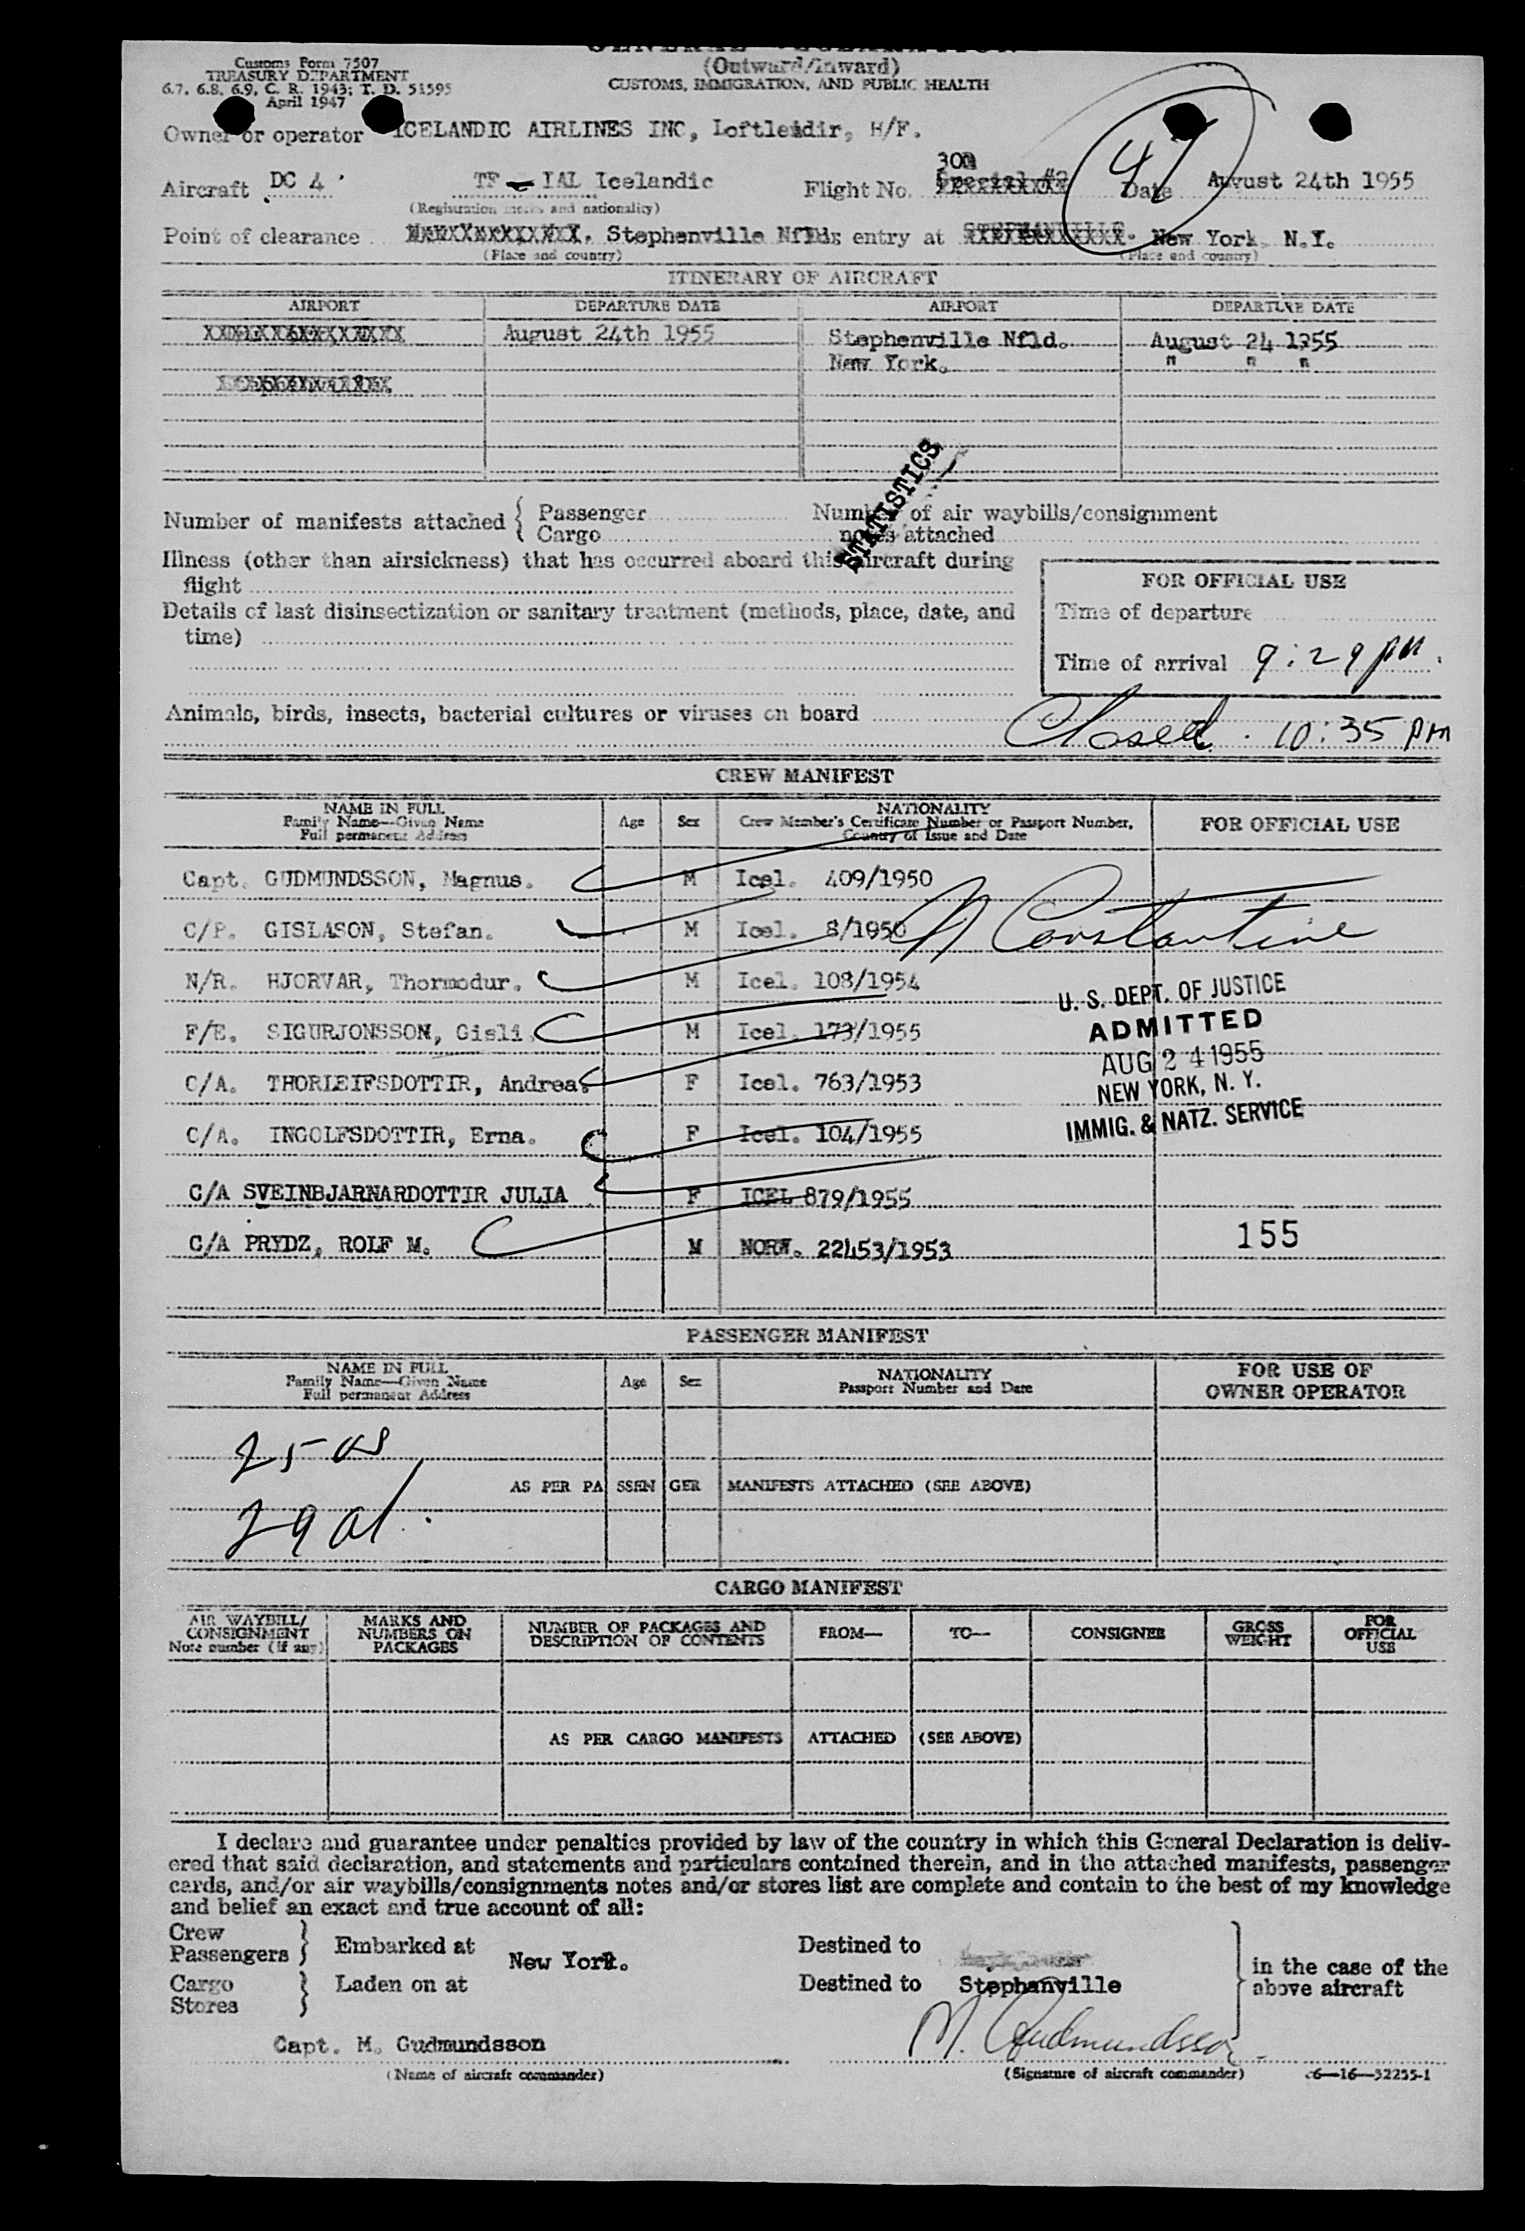 GENERAL DECLARATION
(Outward/Inward)
CUSTOMS, IMMIGRATION, AND PUBLIC HEALTH
Customs Form 7507
TREASURY DEPARTMENT
6.7, 6.8, 6.9, C. R. 1943; T. D. 51595
April 1947
Owner or operator ICELANDIC AIRLINES INC, Loftleidir, H/F.
Aircraft DC 4 TF - IAL Icelandic Flight No. 300 Date August 24th 1955
41
(Registration marks and nationality)
Point of clearance Stephenville Nfld. entry at New York, N.Y.
(Place and country) (Place and country)
ITINERARY OF AIRCRAFT
AIRPORT DEPARTURE DATE AIRPORT DEPARTURE DATE
August 24th 1955 Stephenville Nfld. August 24 1955
New York. " " "
STATISTICS
Number of manifests attached { Passenger Number of air waybills/consignment
Cargo notes attached
Illness (other than airsickness) that has occurred aboard this aircraft during
flight
FOR OFFICIAL USE
Details of last disinsectization or sanitary treatment (methods, place, date, and
time)
Time of departure
Time of arrival 9:29 pm.
Animals, birds, insects, bacterial cultures or viruses on board
Closed. 10:35 pm
CREW MANIFEST
NAME IN FULL
Family Name—Given Name
Full permanent Address
Age Sex
NATIONALITY
Crew Member's Certificate Number or Passport Number,
Country of Issue and Date
FOR OFFICIAL USE
Capt. GUDMUNDSSON, Magnus. M Icel. 409/1950
C/P. GISLASON, Stefan. M Icel. 8/1950
N Constantine
N/R. HJORVAR, Thormodur. M Icel. 108/1954
F/E. SIGURJONSSON, Gisli. M Icel. 173/1955
C/A. THORLEIFSDOTTIR, Andrea. F Icel. 763/1953
C/A. INGOLFSDOTTIR, Erna. F Icel. 104/1955
C/A SVEINBJARNARDOTTIR JULIA F ICEL 879/1955
C/A PRYDZ, ROLF M. M NORW. 22453/1953
U. S. DEPT. OF JUSTICE
ADMITTED
AUG 24 1955
NEW YORK, N. Y.
IMMIG. & NATZ. SERVICE
155
PASSENGER MANIFEST
NAME IN FULL
Family Name—Given Name
Full permanent Address
Age Sex
NATIONALITY
Passport Number and Date
FOR USE OF
OWNER OPERATOR
25 us
AS PER PASSENGER MANIFESTS ATTACHED (SEE ABOVE)
29 al.
CARGO MANIFEST
AIR WAYBILL/
CONSIGNMENT
Note number (if any)
MARKS AND
NUMBERS ON
PACKAGES
NUMBER OF PACKAGES AND
DESCRIPTION OF CONTENTS
FROM—
TO—
CONSIGNEE
GROSS
WEIGHT
FOR
OFFICIAL
USE
AS PER CARGO MANIFESTS ATTACHED (SEE ABOVE)
I declare and guarantee under penalties provided by law of the country in which this General Declaration is deliv-
ered that said declaration, and statements and particulars contained therein, and in the attached manifests, passenger
cards, and/or air waybills/consignments notes and/or stores list are complete and contain to the best of my knowledge
and belief an exact and true account of all:
Crew
Passengers } Embarked at New York. Destined to
Cargo
Stores } Laden on at Destined to Stephanville
in the case of the
above aircraft
Capt. M. Gudmundsson M. Gudmundsson
(Name of aircraft commander) (Signature of aircraft commander) 16—32255-1